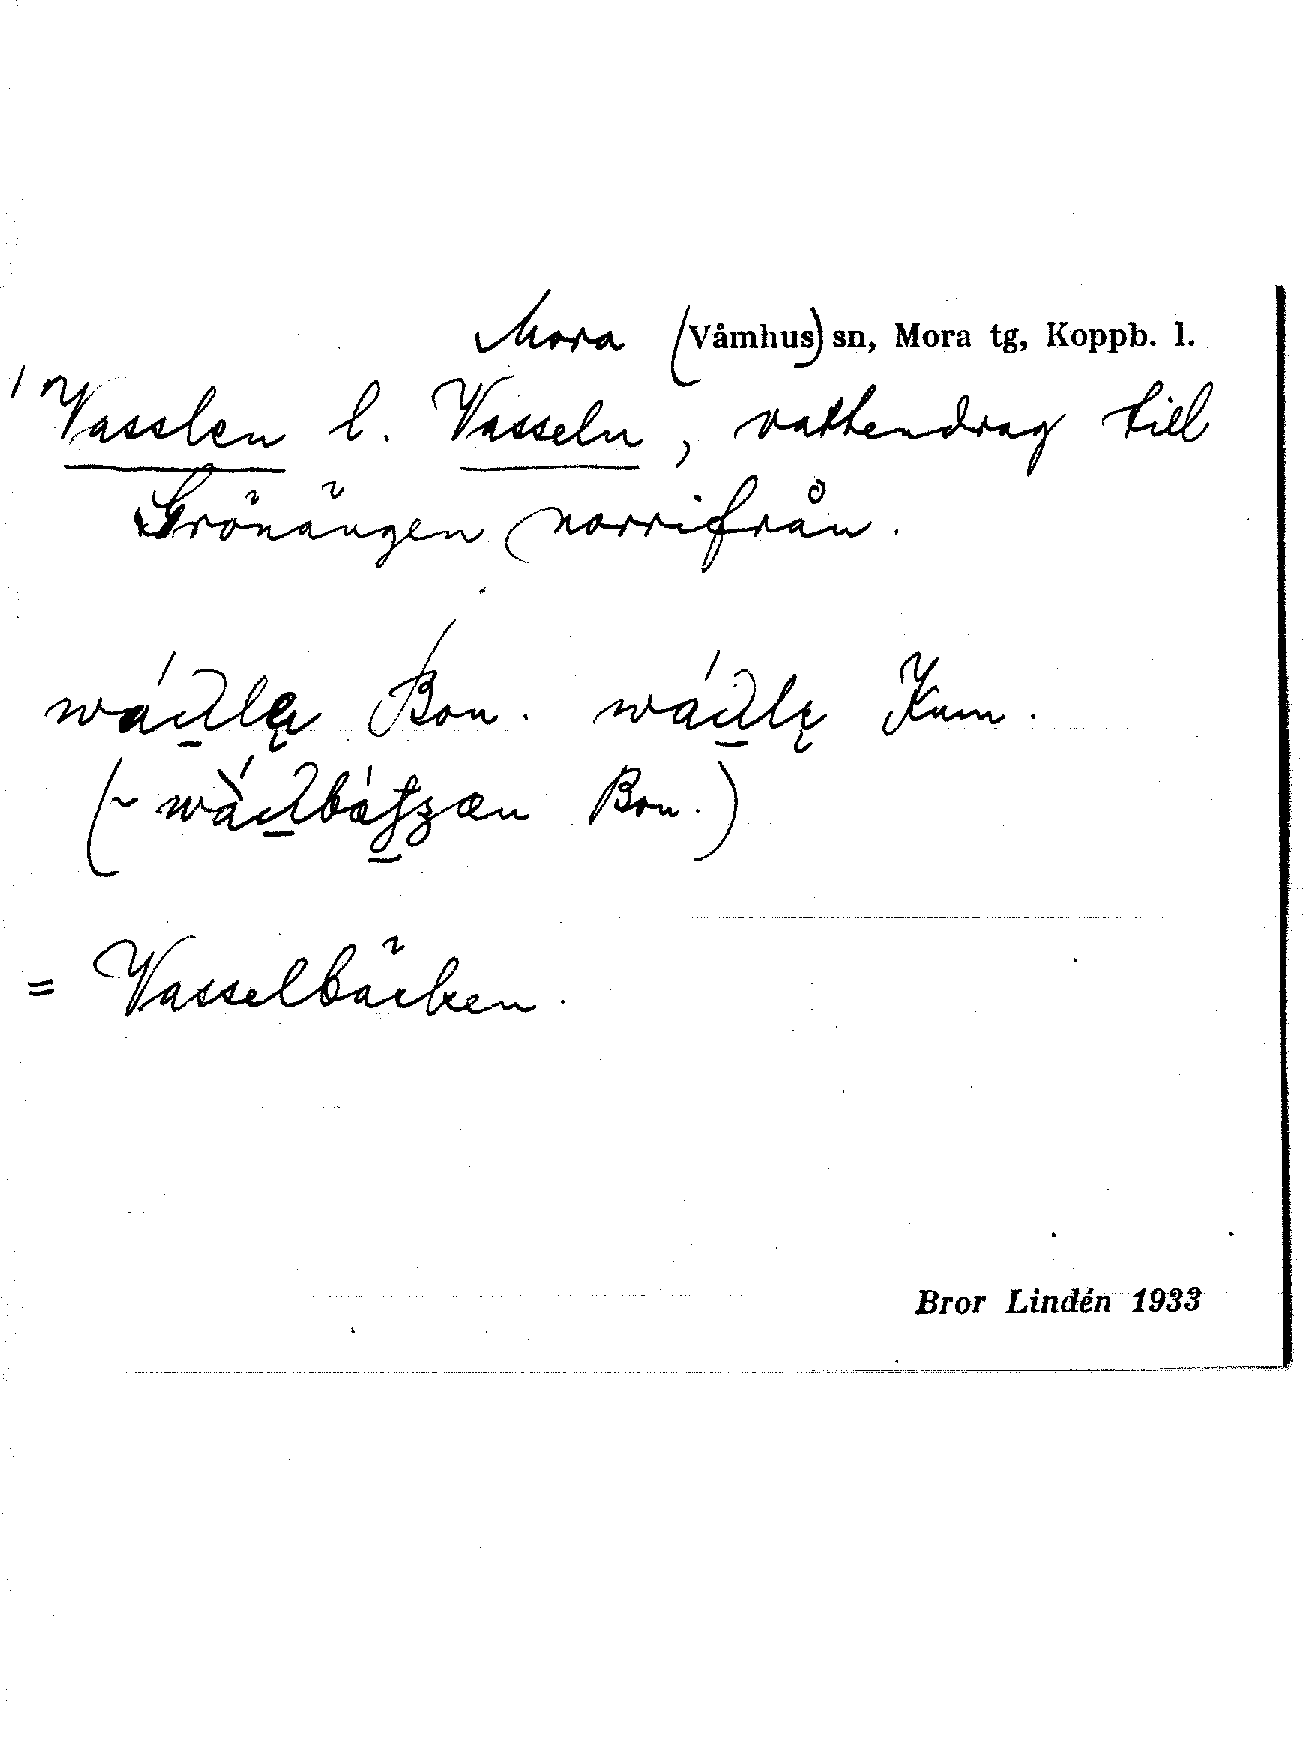 Mora (Våmhus) sn, Mora tg, Koppb. l.
Vasslen l. Vasseln, vattendrag till
Grönängen norrifrån.
Bon. Kum.
(~ Bon.)
= Vasselbäcken.
Bror Lindén 1933